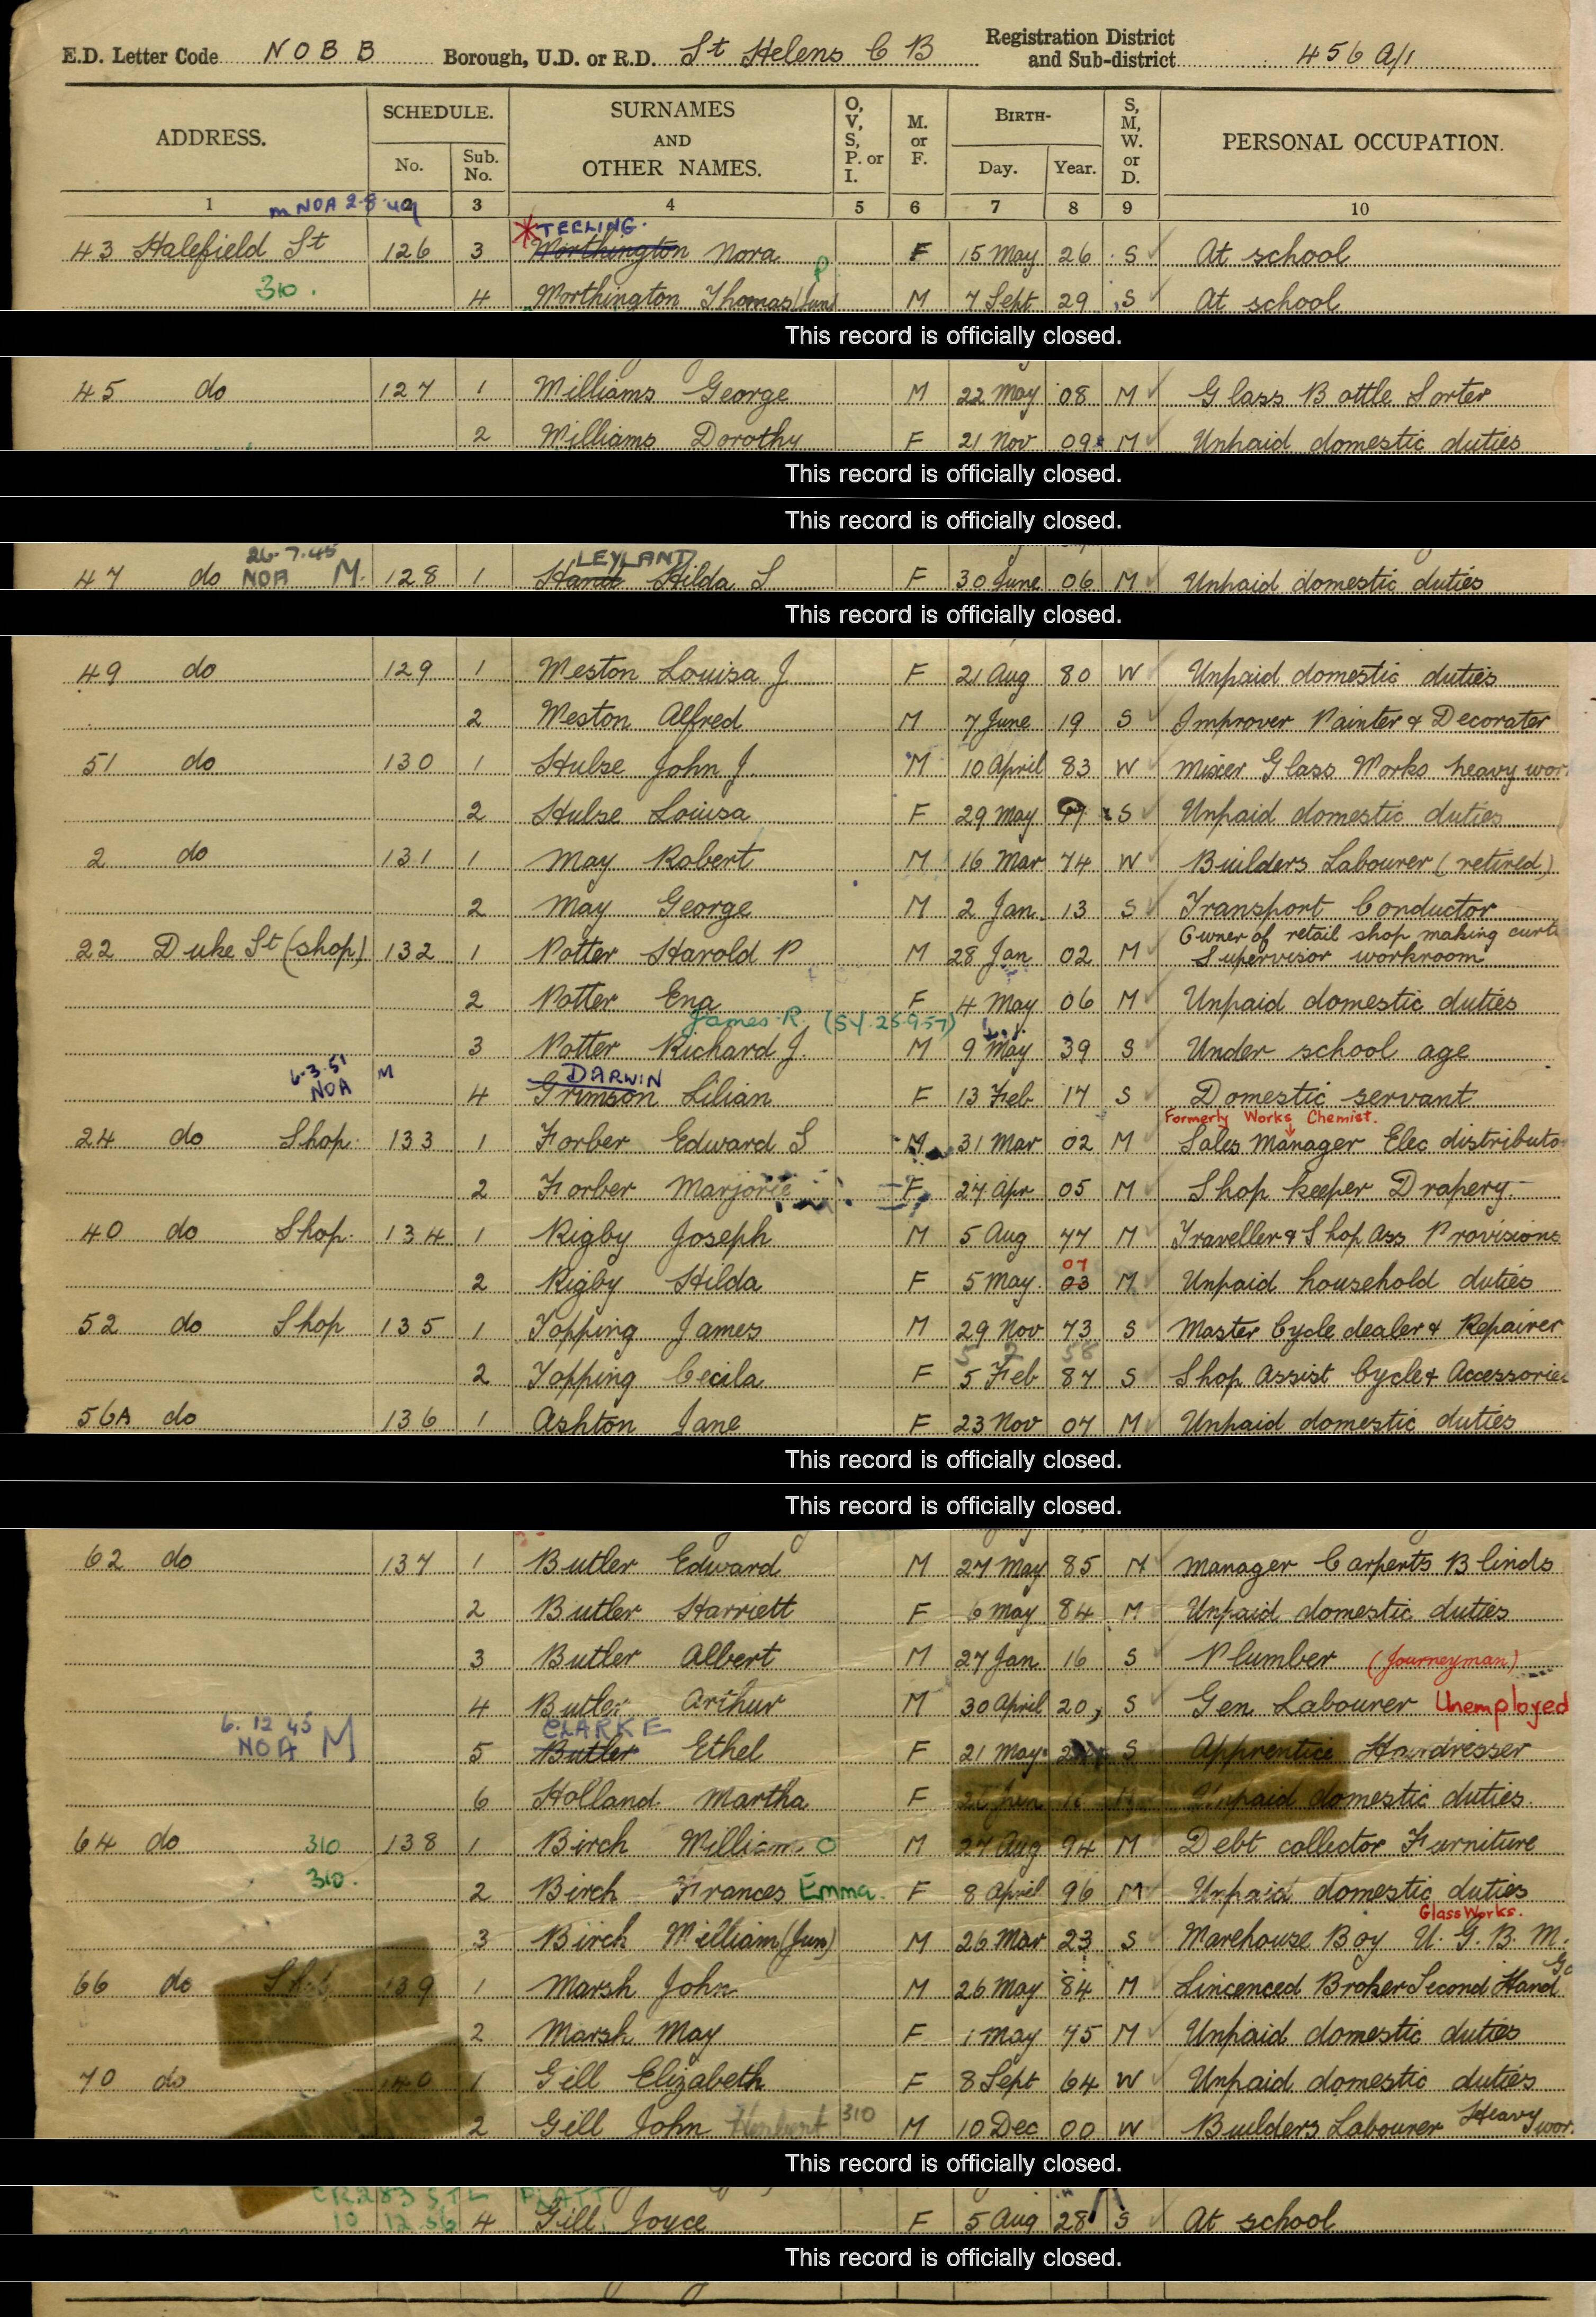 E.D. Letter Code NOBB Borough, U.D. or R.D. St Helens C B Registration District and Sub-district 456 A/1
ADDRESS. SCHEDULE. No. Sub. No. SURNAMES AND OTHER NAMES. O, V, S, P. or I. M. or F. BIRTH- Day. Year. S, M, W. or D. PERSONAL OCCUPATION.
1 2 3 4 5 6 7 8 9 10
m NOA 2-8-49
TEELING.
43 Halefield St 126 3 Worthington Nora F 15 May 26 S At school
310. 4 Worthington Thomas (Jun) P M 7 Sept 29 S At school
This record is officially closed.
45 do 127 1 Williams George M 22 May 08 M Glass Bottle Sorter
2 Williams Dorothy F 21 Nov 09 M Unpaid domestic duties
This record is officially closed.
This record is officially closed.
26.7.45 LEYLAND
47 do NOA M. 128 1 Hand Hilda S F 30 June 06 M Unpaid domestic duties
This record is officially closed.
49 do 129 1 Weston Louisa J F 21 Aug 80 W Unpaid domestic duties
2 Weston Alfred M 7 June 19 S Improver Painter & Decorater
51 do 130 1 Hulse John J. M 10 April 83 W Mixer Glass Works heavy wor
2 Hulse Louisa F 29 May S Unpaid domestic duties
2 do 131 1 May Robert M 16 Mar 74 W Builders Labourer (retired)
2 May George M 2 Jan 13 S Transport Conductor
Owner of retail shop making curt
22 Duke St (shop) 132 1 Potter Harold P M 28 Jan 02 M Supervisor workroom
2 Potter Ena F 4 May 06 M Unpaid domestic duties
James R. (SY.25.9.57)
3 Potter Richard J. M 9 May 39 S Under school age
6.3.51 NOA M DARWIN
4 Grimson Lilian F 13 Feb 17 S Domestic servant
Formerly Works Chemist.
24 do Shop 133 1 Forber Edward S M 31 Mar 02 M Sales Manager Elec distributo
2 Forber Marjorie F 27 Apr 05 M Shop keeper Drapery
40 do Shop 134 1 Rigby Joseph M 5 Aug 77 M Traveller & Shop Ass Provisions
07
2 Rigby Hilda F 5 May 03 M Unpaid household duties
52 do Shop 135 1 Topping James M 29 Nov 73 S Master Cycle dealer & Repairer
2 Topping Cecila F 5 Feb 87 S Shop Assist Cycle & Accessories
56A do 136 1 Ashton Jane F 23 Nov 07 M Unpaid domestic duties
This record is officially closed.
This record is officially closed.
62 do 137 1 Butler Edward M 27 May 85 M Manager Carperts Blinds
2 Butler Harriett F 6 May 84 M Unpaid domestic duties
3 Butler Albert M 27 Jan 16 S Plumber (Journeyman)
4 Butler Arthur M 30 April 20 S Gen. Labourer Unemployed
6.12.45 NOA M CLARKE
5 Butler Ethel F 21 May S Apprentice Hairdresser
6 Holland Martha F Unpaid domestic duties.
64 do 310 138 1 Birch William O M 27 Aug 94 M Debt collector Furniture
310. 2 Birch Frances Emma F 8 April 96 M Unpaid domestic duties
Glass Works.
3 Birch William (Jun) M 26 Mar 23 S Warehouse Boy U.G.B.M.
66 do 139 1 Marsh John M 26 May 84 M Lincenced Broker Second Hand Go
2 Marsh May F 1 May 75 M Unpaid domestic duties
70 do 140 1 Gill Elizabeth F 8 Sept 64 W Unpaid domestic duties
2 Gill John Herbert 310 M 10 Dec 00 W Builders Labourer Heavy wor.
This record is officially closed.
CR283 STL PLATT
10 12 56 4 Gill Joyce F 5 Aug 28 S At school
This record is officially closed.